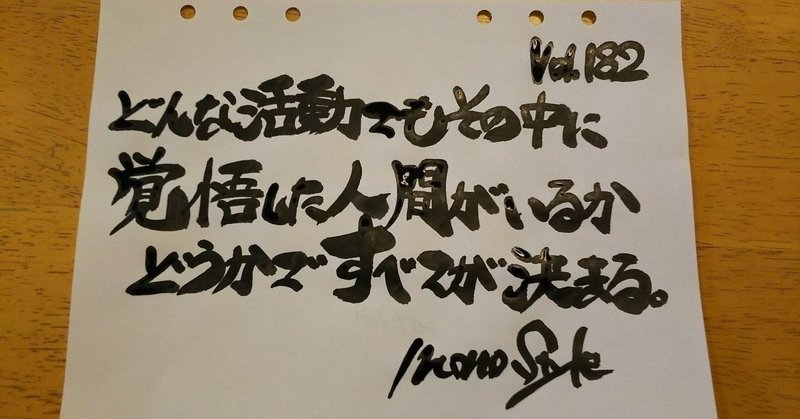 Vol.182
どんな活動でもその中に
覚悟した人間がいるか
どうかですべてが決まる。
Style